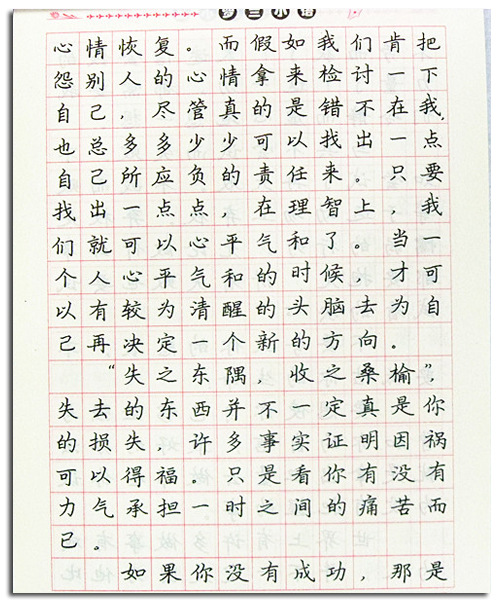 心情恢复。而假如我们肯把
怨别人的心情拿来检讨一下
自己，尽管真的是错不在我，
也总多多少少可以找出一点
自己所应负的责任来。只要
找出一点点，在理智上，我
们就可以心平气和了。当一
个人心平气和的时候，才可
以有较为清醒的头脑去为自
己再决定一个新的方向。
“失之东隅，收之桑榆”，
失去的东西并不一定真是你
的损失，许多事实证明因祸
可以得福。只是看你有没有
力气承担一时之间的痛苦而
已。
如果你没有成功，那是